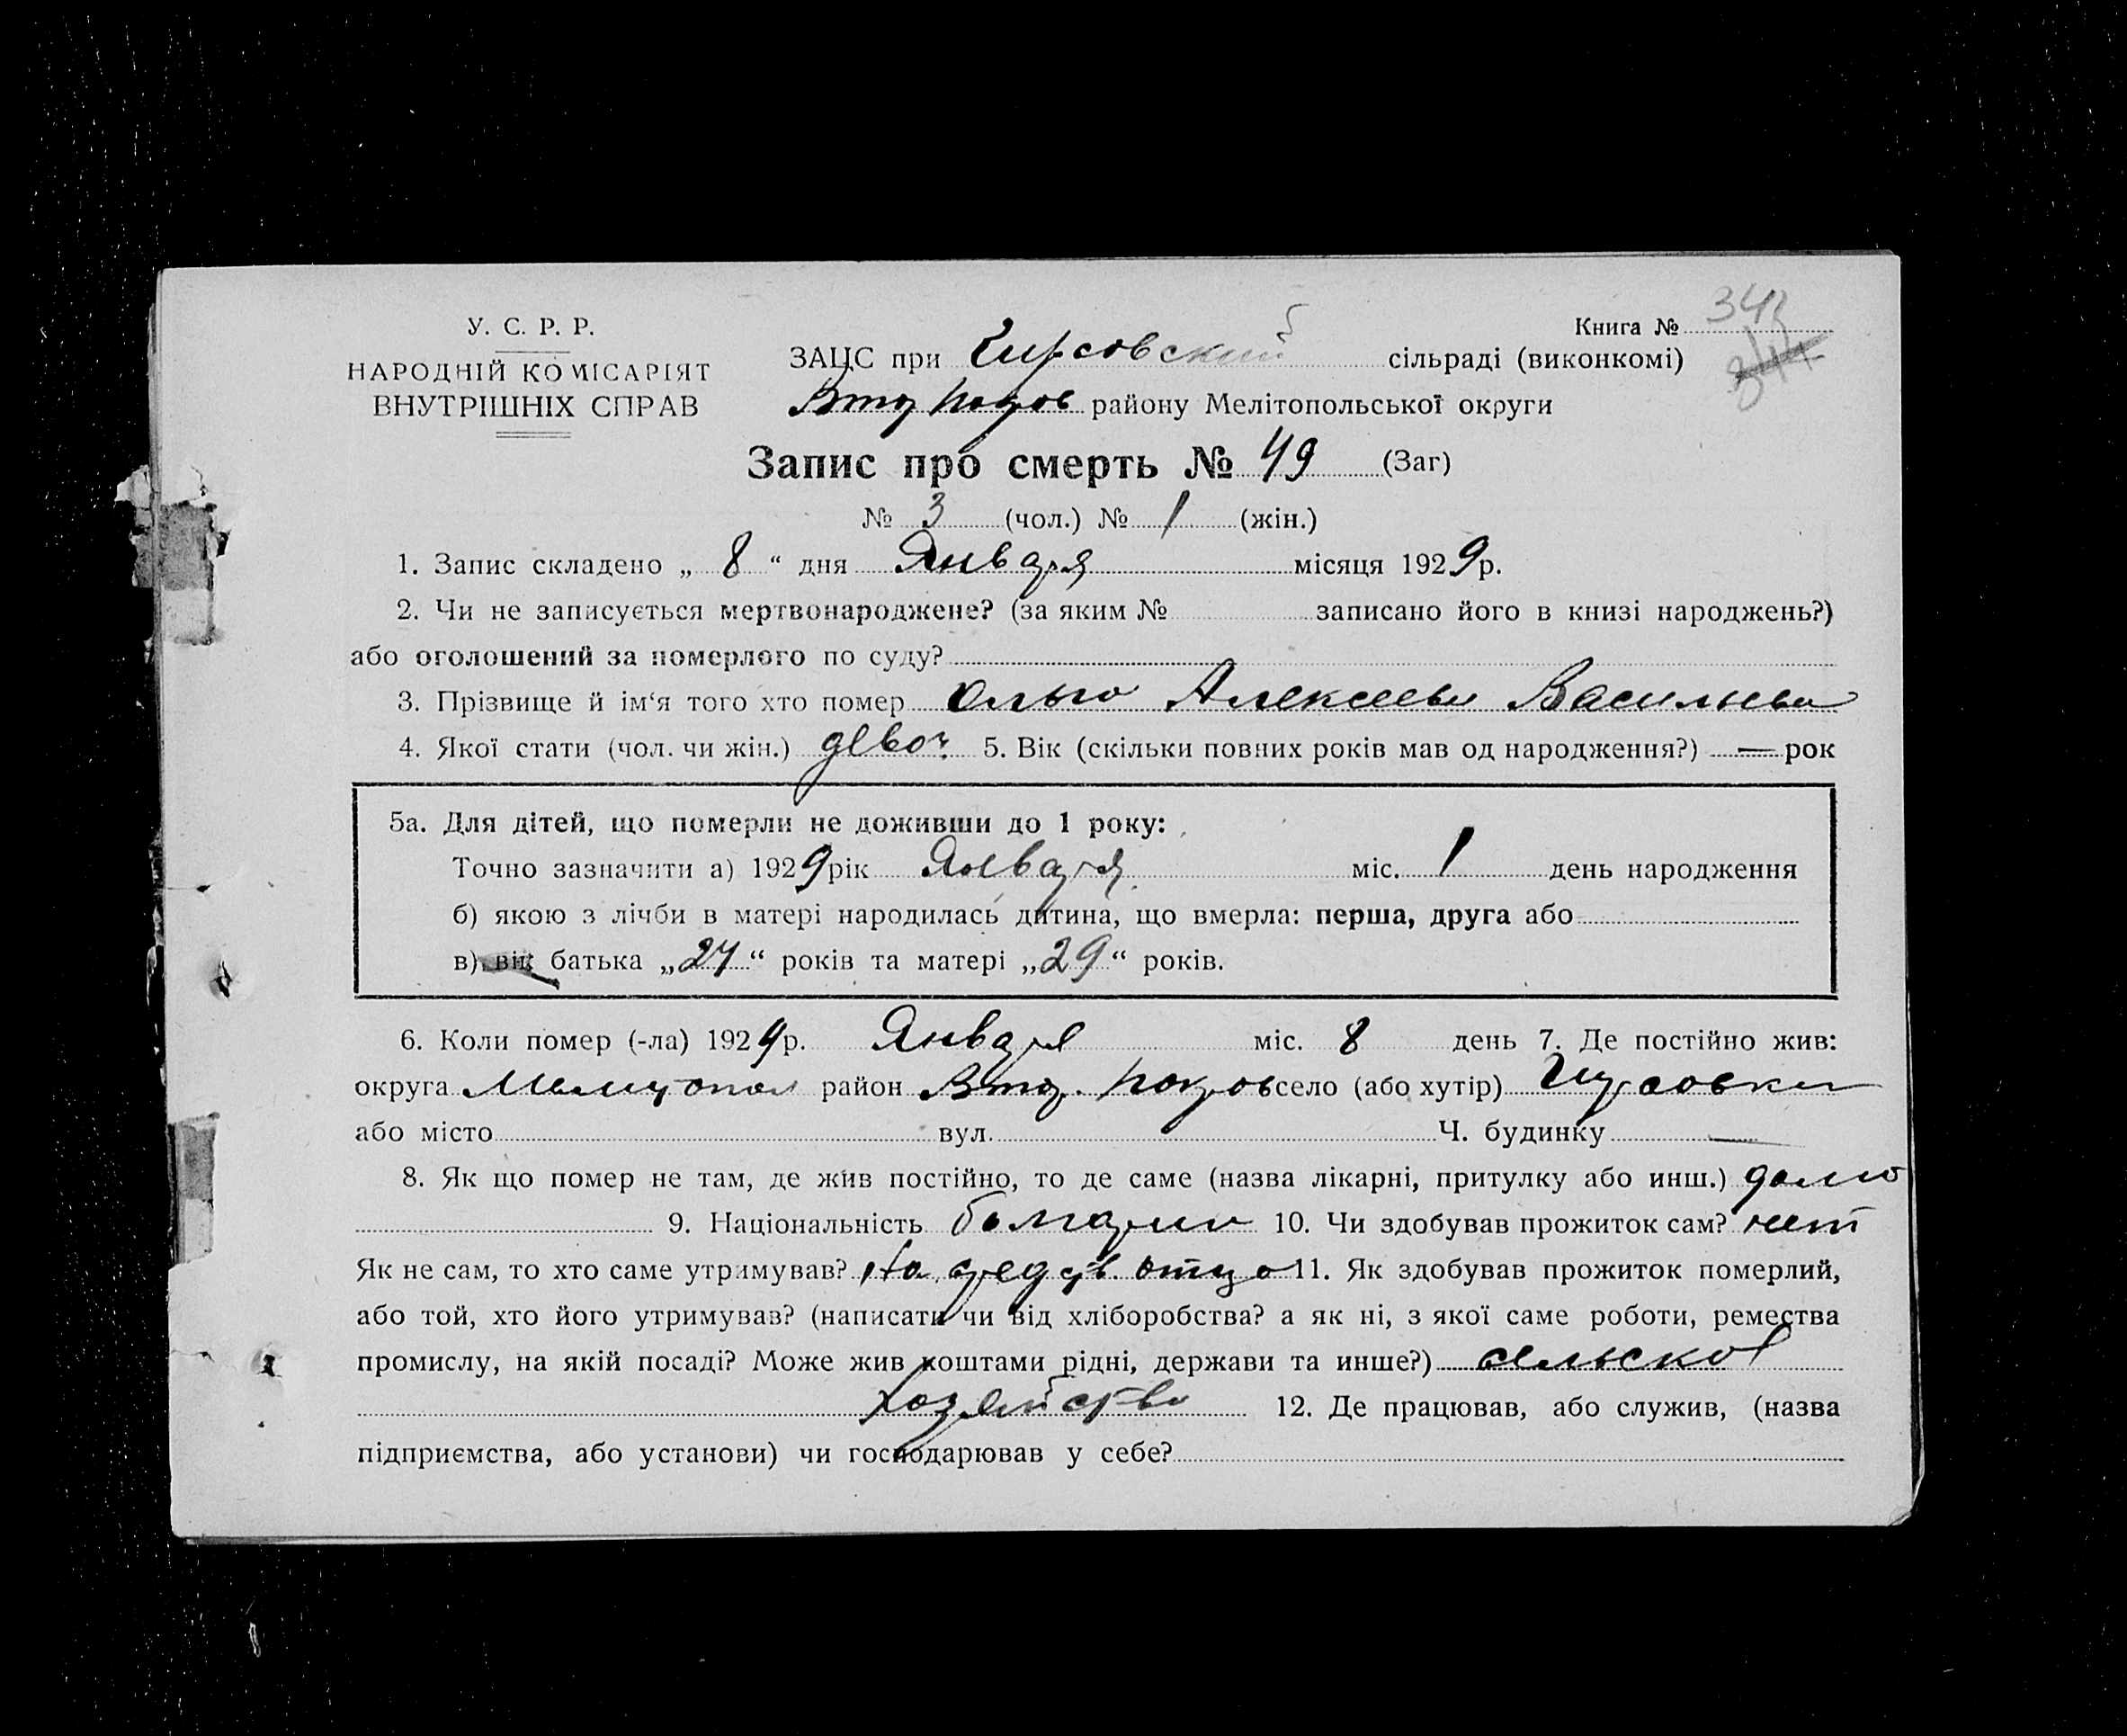 У. С. Р. Р.
НАРОДНІЙ КОМІСАРІЯТ
ВНУТРІШНІХ СПРАВ
Книга № 343
344
ЗАЦС при Гирсовский сільраді (виконкомі)
Втор Покров району Мелітопольської округи
Запис про смерть № 49 (Заг)
№ 3 (чол.) № 1 (жін.)
1. Запис складено „ 8 “ дня Января місяця 1929р.
2. Чи не записується мертвонароджене? (за яким № записано його в книзі народжень?)
або оголошений за померлого по суду?
3. Прізвище й ім‘я того хто помер Ольга Алексеева Васильева
4. Якої стати (чол. чи жін.) девоч. 5. Вік (скільки повних років мав од народження?) — рок
5а. Для дітей, що померли не доживши до 1 року:
Точно зазначити а) 1929рік Января міс. 1 день народження
б) якою з лічби в матері народилась дитина, що вмерла: перша, друга або
в) вік батька „27“ років та матері „29“ років.
6. Коли помер (-ла) 1929р. Января міс. 8 день 7. Де постійно жив:
округа Мелитопол район Втор. Покров село (або хутір) Гирсовки
або місто вул. Ч. будинку —
8. Як що помер не там, де жив постійно, то де саме (назва лікарні, притулку або инш.) дома
9. Національність болгарин 10. Чи здобував прожиток сам? нет
Як не сам, то хто саме утримував? На средств. отца 11. Як здобував прожиток померлий,
або той, хто його утримував? (написати чи від хліборобства? а як ні, з якої саме роботи, ремества
промислу, на якій посаді? Може жив коштами рідні, держави та инше?) сельское
хозяйство 12. Де працював, або служив, (назва
підприємства, або установи) чи господарював у себе?